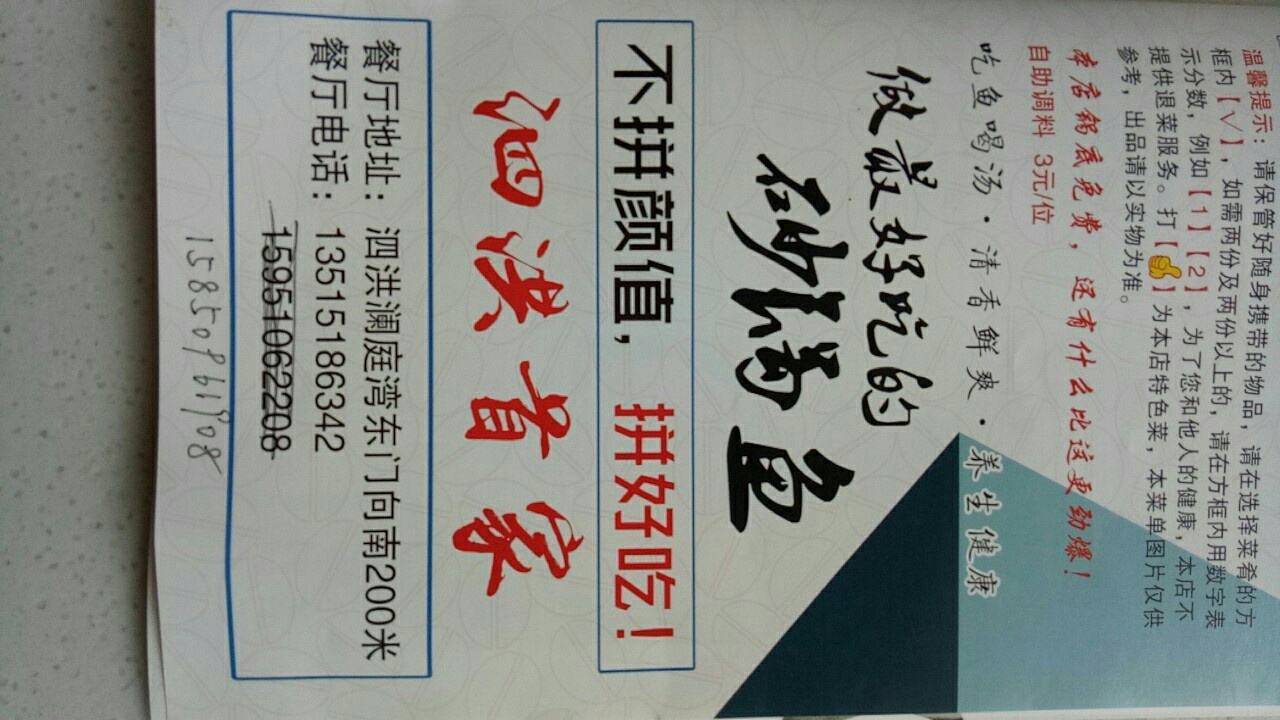 温馨提示：请保管好随身携带的物品，请在选择菜肴的方
框内【√】，如需两份及两份以上的，请在方框内用数字表
示分数，例如【1】【2】，为了您和他人的健康，本店不
提供退菜服务。打【👍】为本店特色菜，本菜单图片仅供
参考，出品请以实物为准。
本店锅底免费，还有什么比这更劲爆！
自助调料 3元/位
吃鱼喝汤·清香鲜爽·养生健康
做最好吃的
砂锅鱼
不拼颜值，拼好吃！
泗洪首家
餐厅地址：泗洪澜庭湾东门向南200米
餐厅电话：13515186342
15951062208
15850961908